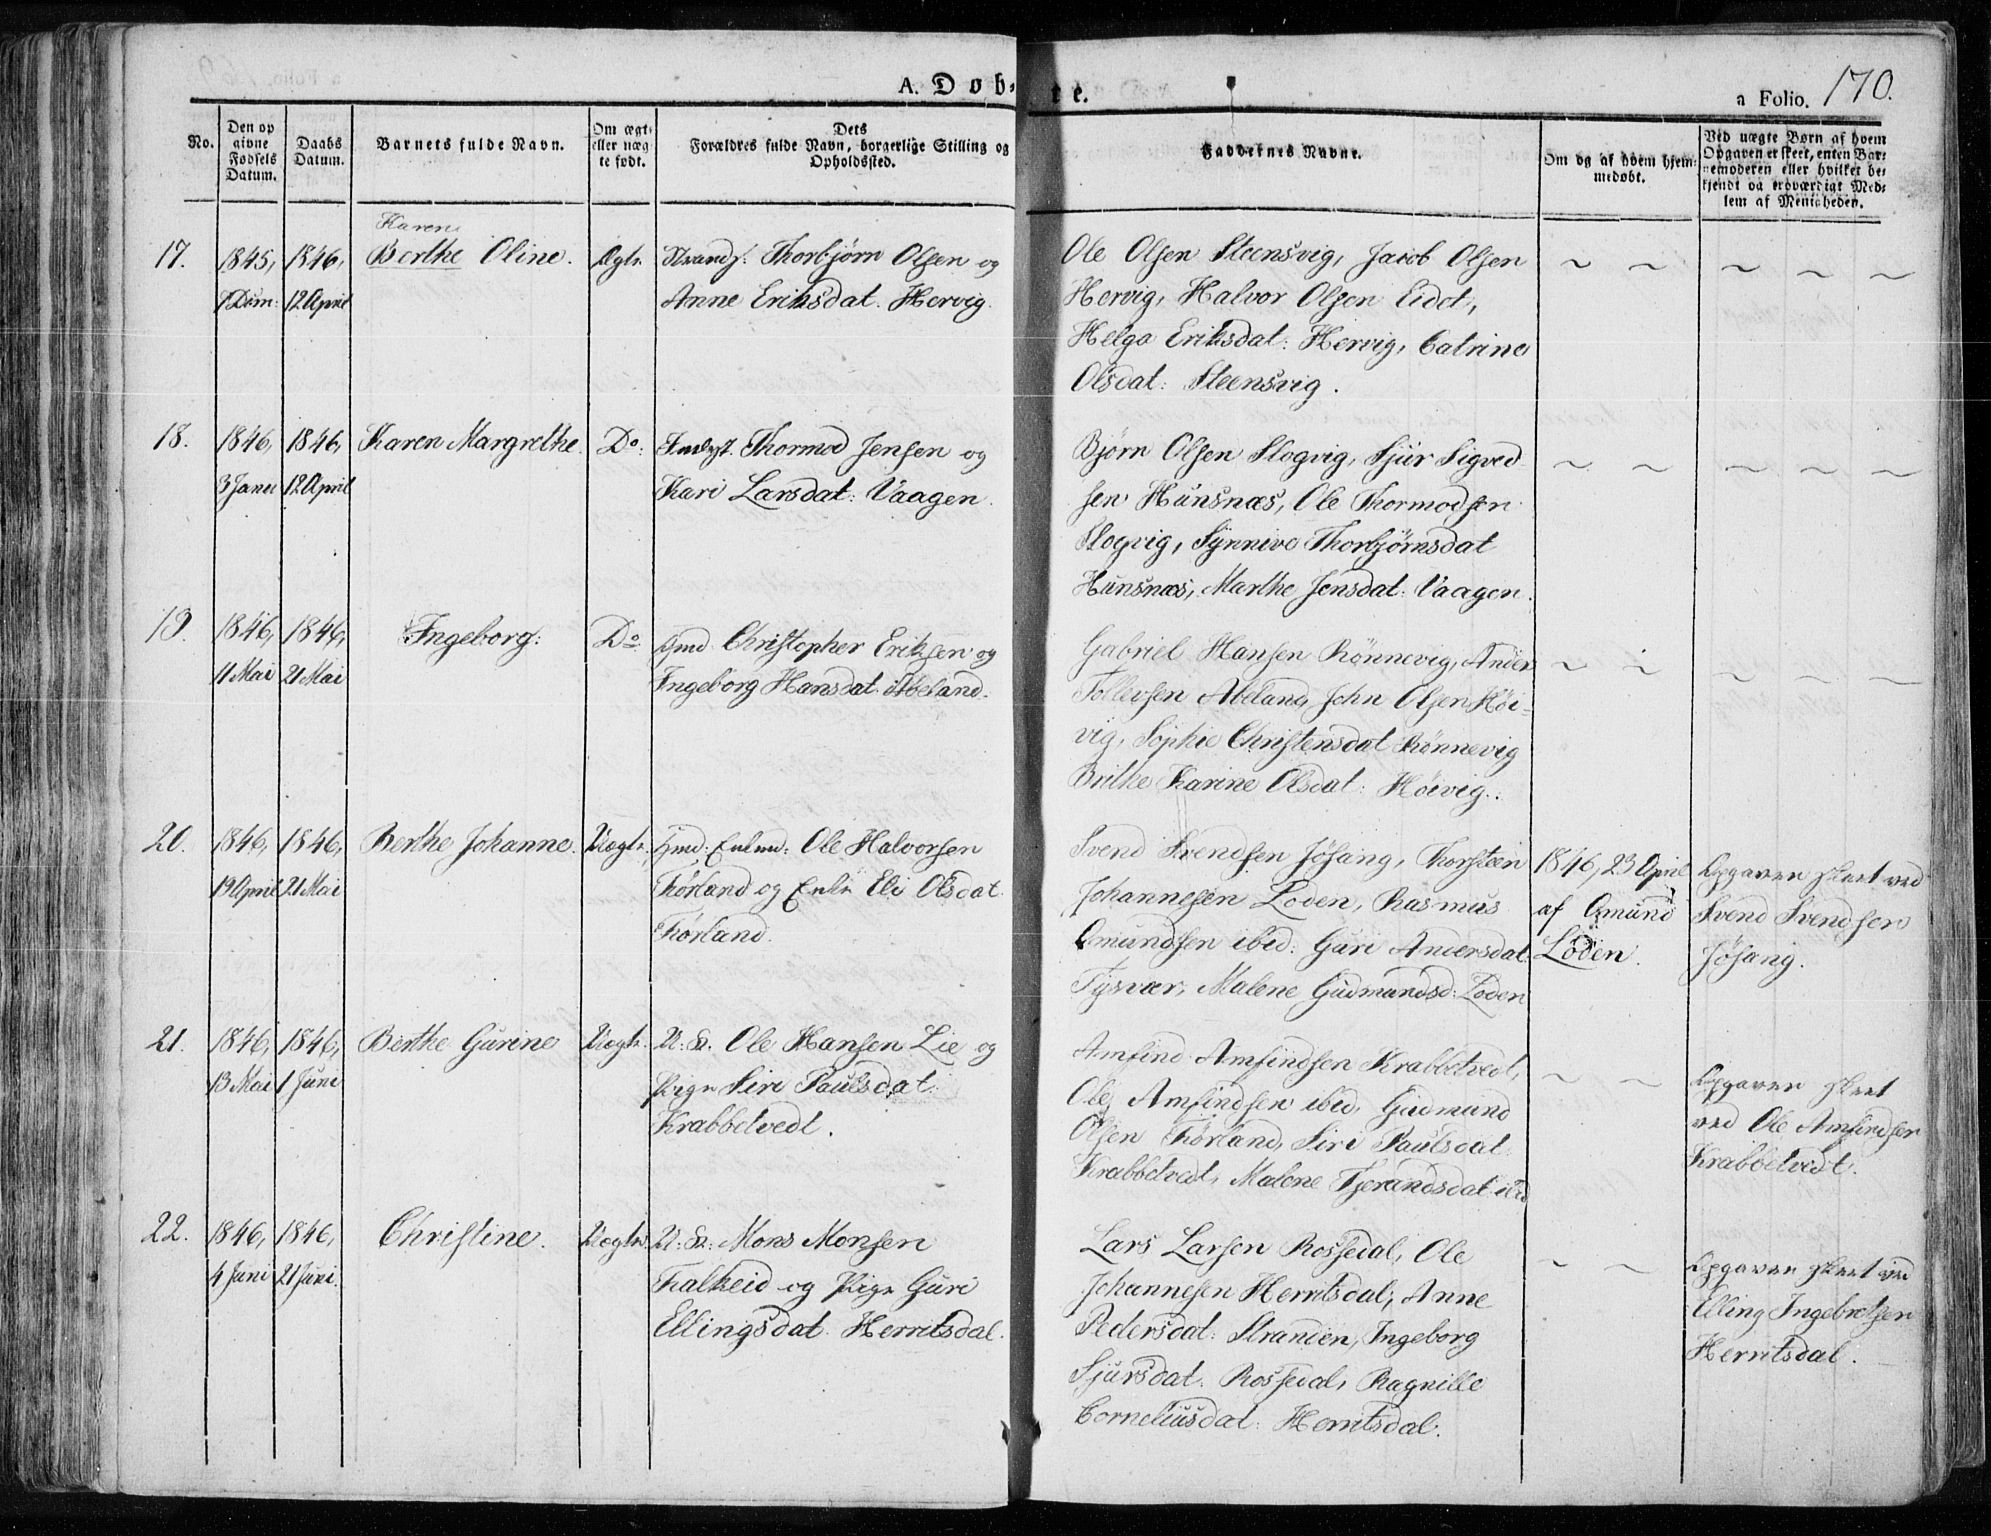 A. Döbte.
a Folio. 170.
No.
Den opgivne Fødsels Datum.
Daabs Datum.
Barnets fulde Navn.
Om ægte eller uægte født.
Dets Forældres fulde Navn, borgerlige Stilling og Opholdssted.
Faddernes Navne.
Om og af hvem hjemmedøbt.
Ved uægte Børn af hvem Opgaven er skeet, enten Barnemoderen eller hvilket bekjendt og troværdigt Medlem af Menigheden.
17.
1845,
1846, 12 April
Karen
Berthe Oline.
Ægte.
Strands. Thorbjørn Olsen og
Anne Eriksdat. Hervig.
Ole Olsen Steensvig, Jacob Olsen
Hervig, Halvor Olsen Eidet,
Helga Eriksdat: Hervig, Catrine
Olsdat: Steensvig.
18.
1846, 3 Januar
1846, 12 April
Karen Margrethe.
Do:
Thormod Jensen og
Kari Larsdat: Vaagen.
Bjørn Olsen Slogvig, Sjur Sigved
sen Hunsnæs, Ole Thormodsen
Slogvig, Synnive Thorbjørnsdat
Hunsnæs, Marthe Jensdat: Vaagen.
19.
1846, 11 Mai
1846, 21 Mai
Ingeborg:
Do
Gmd Christopher Eriksen og
Ingeborg Hansdat. Abeland.
Gabriel Hansen Rönnevig, Anders
Tollevsen Abeland, John Olsen Höi-
vig, Sophie Christensdat Rönnevig
Brithe Karine Olsdat: Höivig.
20.
1846, 19 April
1846, 21 Mai
Berthe Johanne.
Uægte.
Gmd: Enkem: Ole Halvorsen
Førland og Enke Eli Olsdat
Førland.
Svend Svendsen Jösang, Thorsteen
Johannesen Loden, Rasmus
Omundsen ibid: Guri Andersdat:
Tysvær, Malene Gudmundsd: Loden
1846, 23 April
af Omund
Loden.
Opgaven skeet ved
Svend Svendsen
Jösang.
21.
1846, 13 Mai
1846, 1 Juni
Berthe Gurine
Uægte.
U: K. Ole Hansen Lie og
Pige Siri Paulsdat
Krabbetvedt.
Amfind Amfindsen Krabbetvedt,
Ole Amfindsen ibid, Gudmund
Olsen Førland, Siri Paulsdat
Krabbetvedt, Malene Tjerandsdat ibid
Opgaven skeet
ved Ole Amfindsen
Krabbetvedt.
22.
1846, 4 Juni
1846, 21 Juni.
Christine.
Uægte.
U: K: Mons Monsen
Falkeid og Pige Guri
Ellingsdat. Herritsdal.
Lars Larsen Rossedal, Ole
Johannesen Herritsdal, Anne
Pedersdat: Stranden, Ingeborg
Sjursdat. Rossedal, Ragnille
Corneliusdat: Herritsdal.
Opgaven skeet ved
Elling Ingebretsen
Herritsdal.